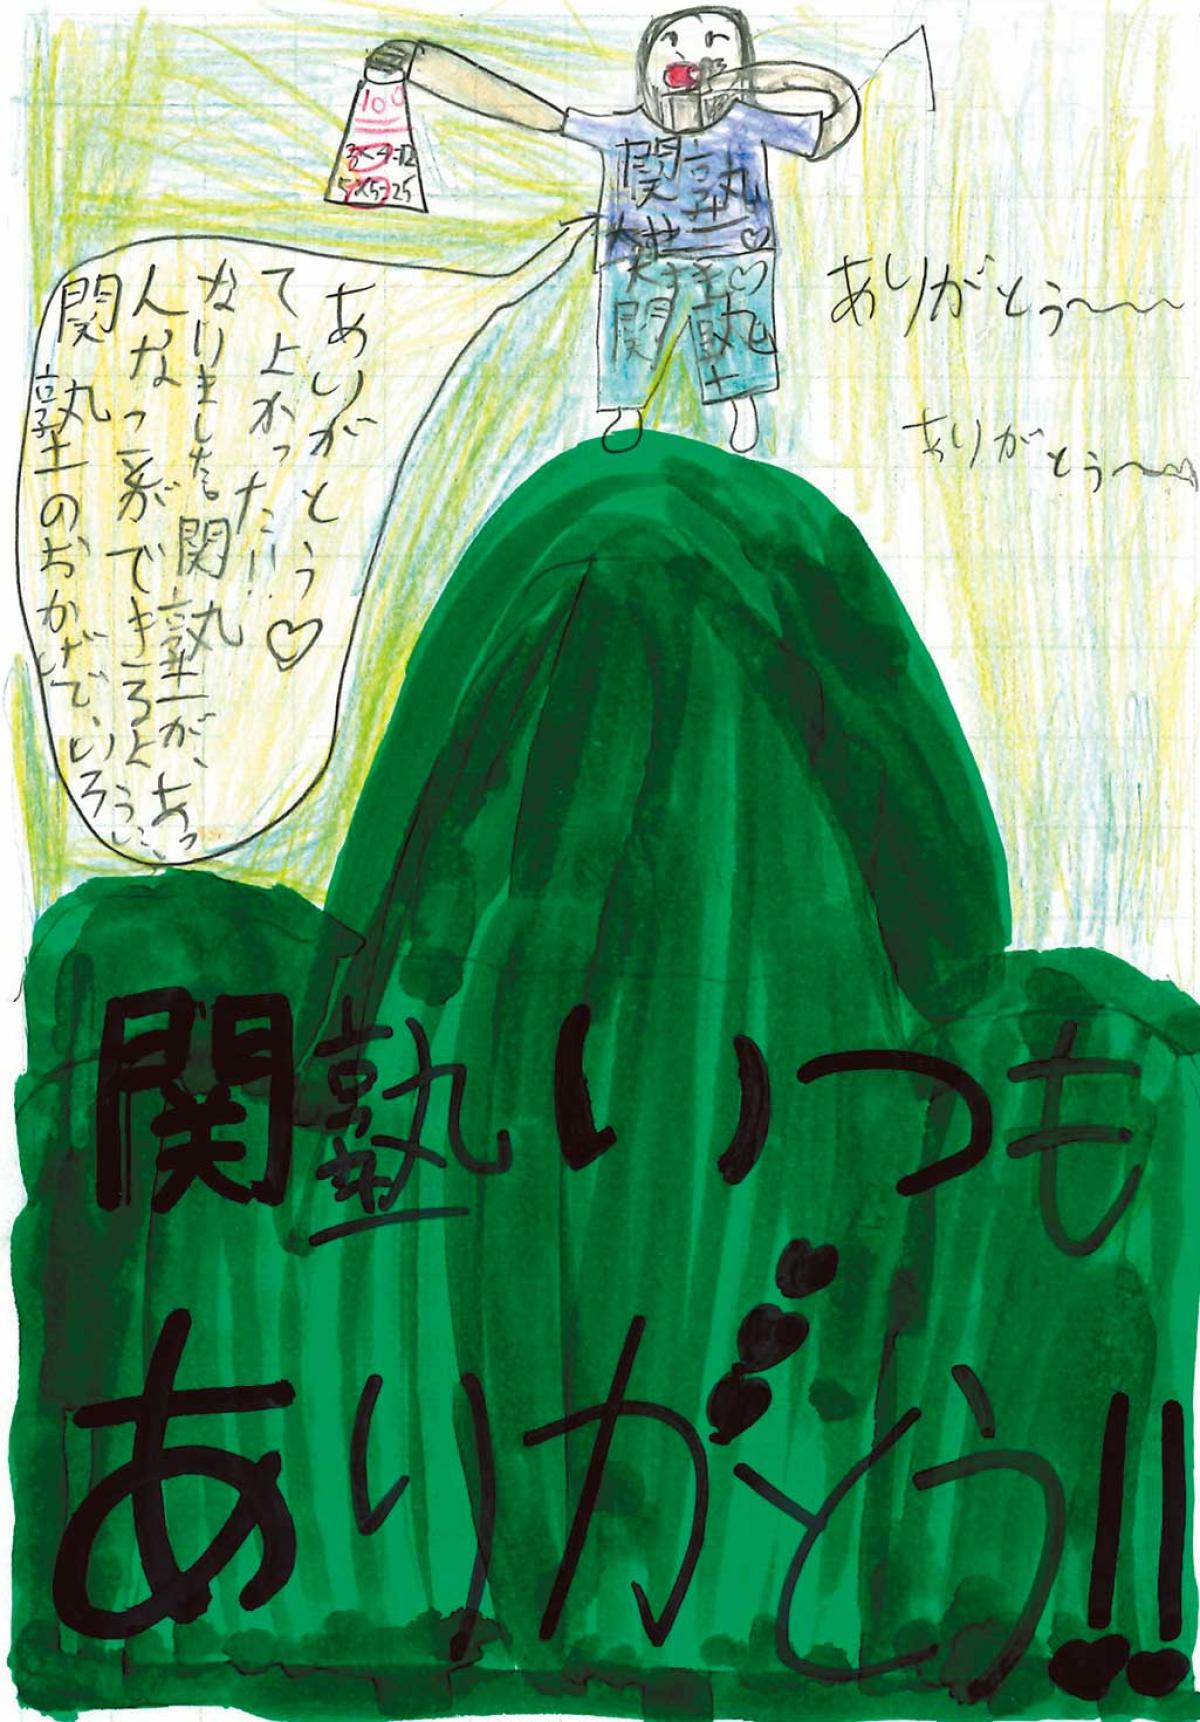 100
3×4=12
5×5=25
関塾
大すき♡
関塾
関塾のおかげで、いろ
んなっ事ができるように
なりました関塾が、あっ
てよかった!!
ありがとう♡
ありがとぅ〜〜〜
ありがとぅ〜〜
関塾いつも
ありがとう!!